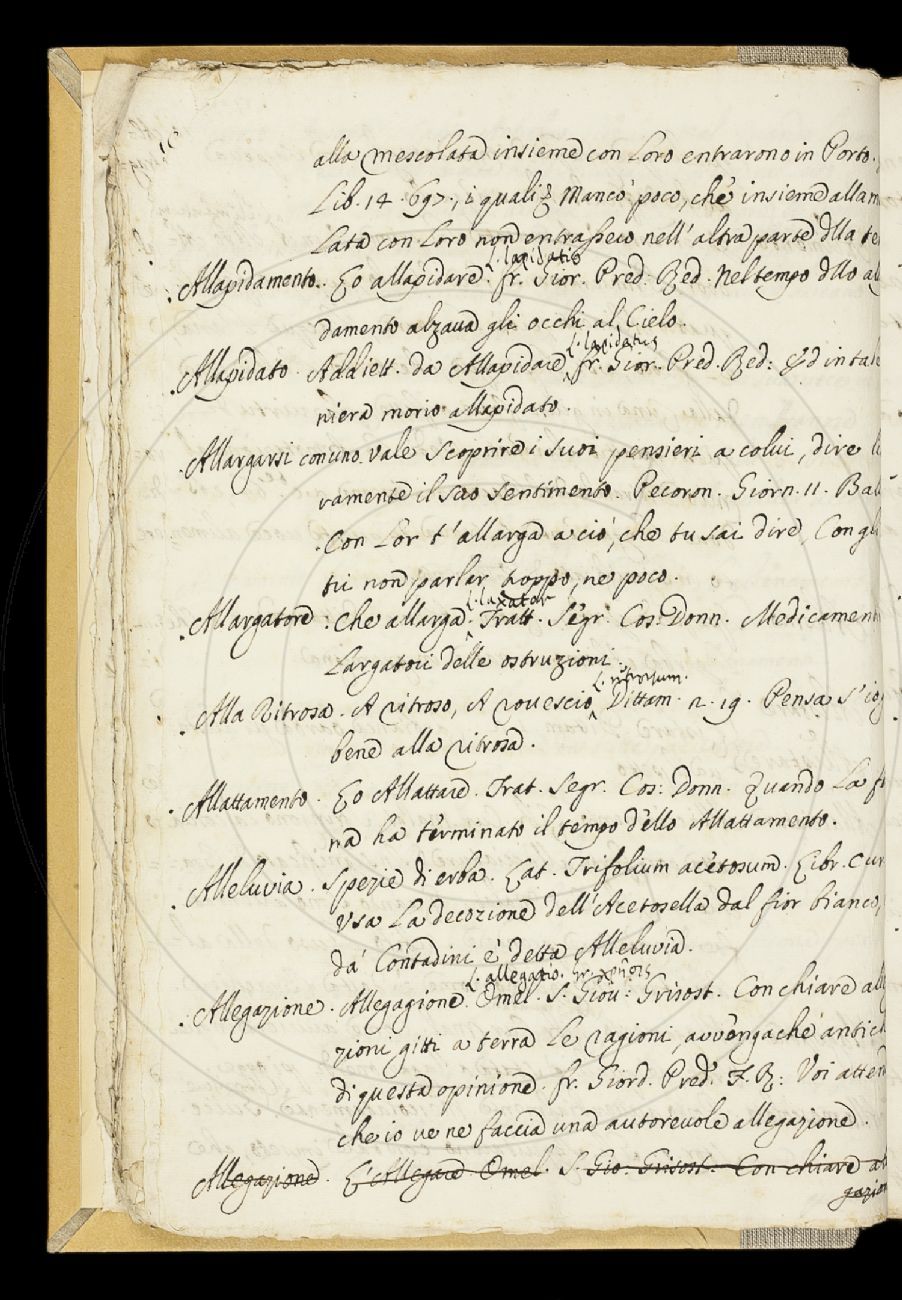 alla mescolata insieme con Loro entrarono in Porto.
Lib. 14. 697., i quali Mancò poco, che insieme alla m
Lata con Loro non entrassero nell' altra parte dlla te
L. lapidatio
Allapidamento. Lo allapidare. fr. Gior. Pred. Red. Nel tempo dllo al
damento alzava gli occhi al Cielo.
L. lapidatus
Allapidato. Addiett. da Allapidare fr. Gior. Pred. Red: Ed in tale
niera morio allapidato.
Allargarsi con uno vale scoprire i suoi pensieri a colui, dire li
vamente il suo sentimento. Pecoron. Giorn. 11. Bal
Con Lor t' allarga a ciò, che tu sai dire, Con gli
tii non parlar troppo, ne poco.
L. laxator
Allargatore: Che allarga. Tratt. Segr. Cos: Donn. Medicamen
Largatori delle ostruzioni.
L. retrorsum.
Alla Ritrosa. A ritroso, A rovescio, Dittam. 2. 19. Pensa s' io
bene alla ritrosa.
Allattamento. Lo Allattare. Trat. Segr. Cos: Donn. Quando La f
na ha terminato il tempo dello Allattamento.
Alleluvia. Spezie di erba. Lat. Trifolium acetosum. Libr. cur
Usa La decozione dell' Acetosella dal fior bianco,
da' Contadini è detta Alleluvia.
L. allegatio.
Allegazione. Allegagione. Omel. S. Giov: Grisost. Con chiare all
zioni gitti a terra Le ragioni, avvengachè antich
di questa opinione. fr. Giord. Pred. F. R: Voi atten
che io ve ne faccia una autorevole allegazione.
Allegazione. L' Allegare Omel. S. Gio: Grisost. Con chiare al
gazion